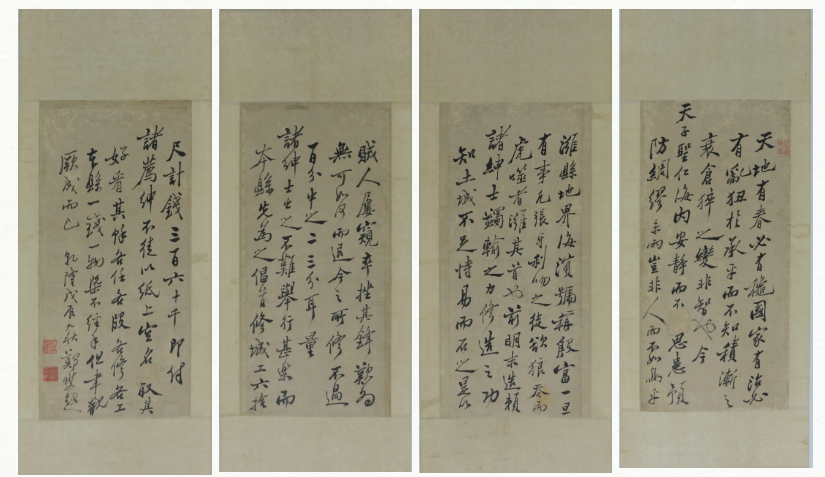 天地有春必有秋國家有治必
有亂狃於承平而不知積漸之
衰倉猝之變非智也今
天子聖仁海內安静而不思患預
防綢繆未雨豈非人而不如鳥乎
濰縣地界海濱號稱殷富一旦
有事凡張牙利吻之徒欲狼吞而
虎噬者濰其首也前明末造賴
諸紳士蠲輸之力修造之功
知土城不足恃易而石之是以
賊人屢窺卒挫其鋒歎為
無可如何而退今之所修不過
百分中之二三分耳量
諸紳士出之不難舉行甚樂而
本縣先為之倡首修城工六拾
尺計錢三百六十千即付
諸薦紳不徒以紙上空名取其
好看其餘各任各股各修各工
本縣一錢一物槩不經手但率觀
厥成而已 乾隆戊辰 鄭燮題